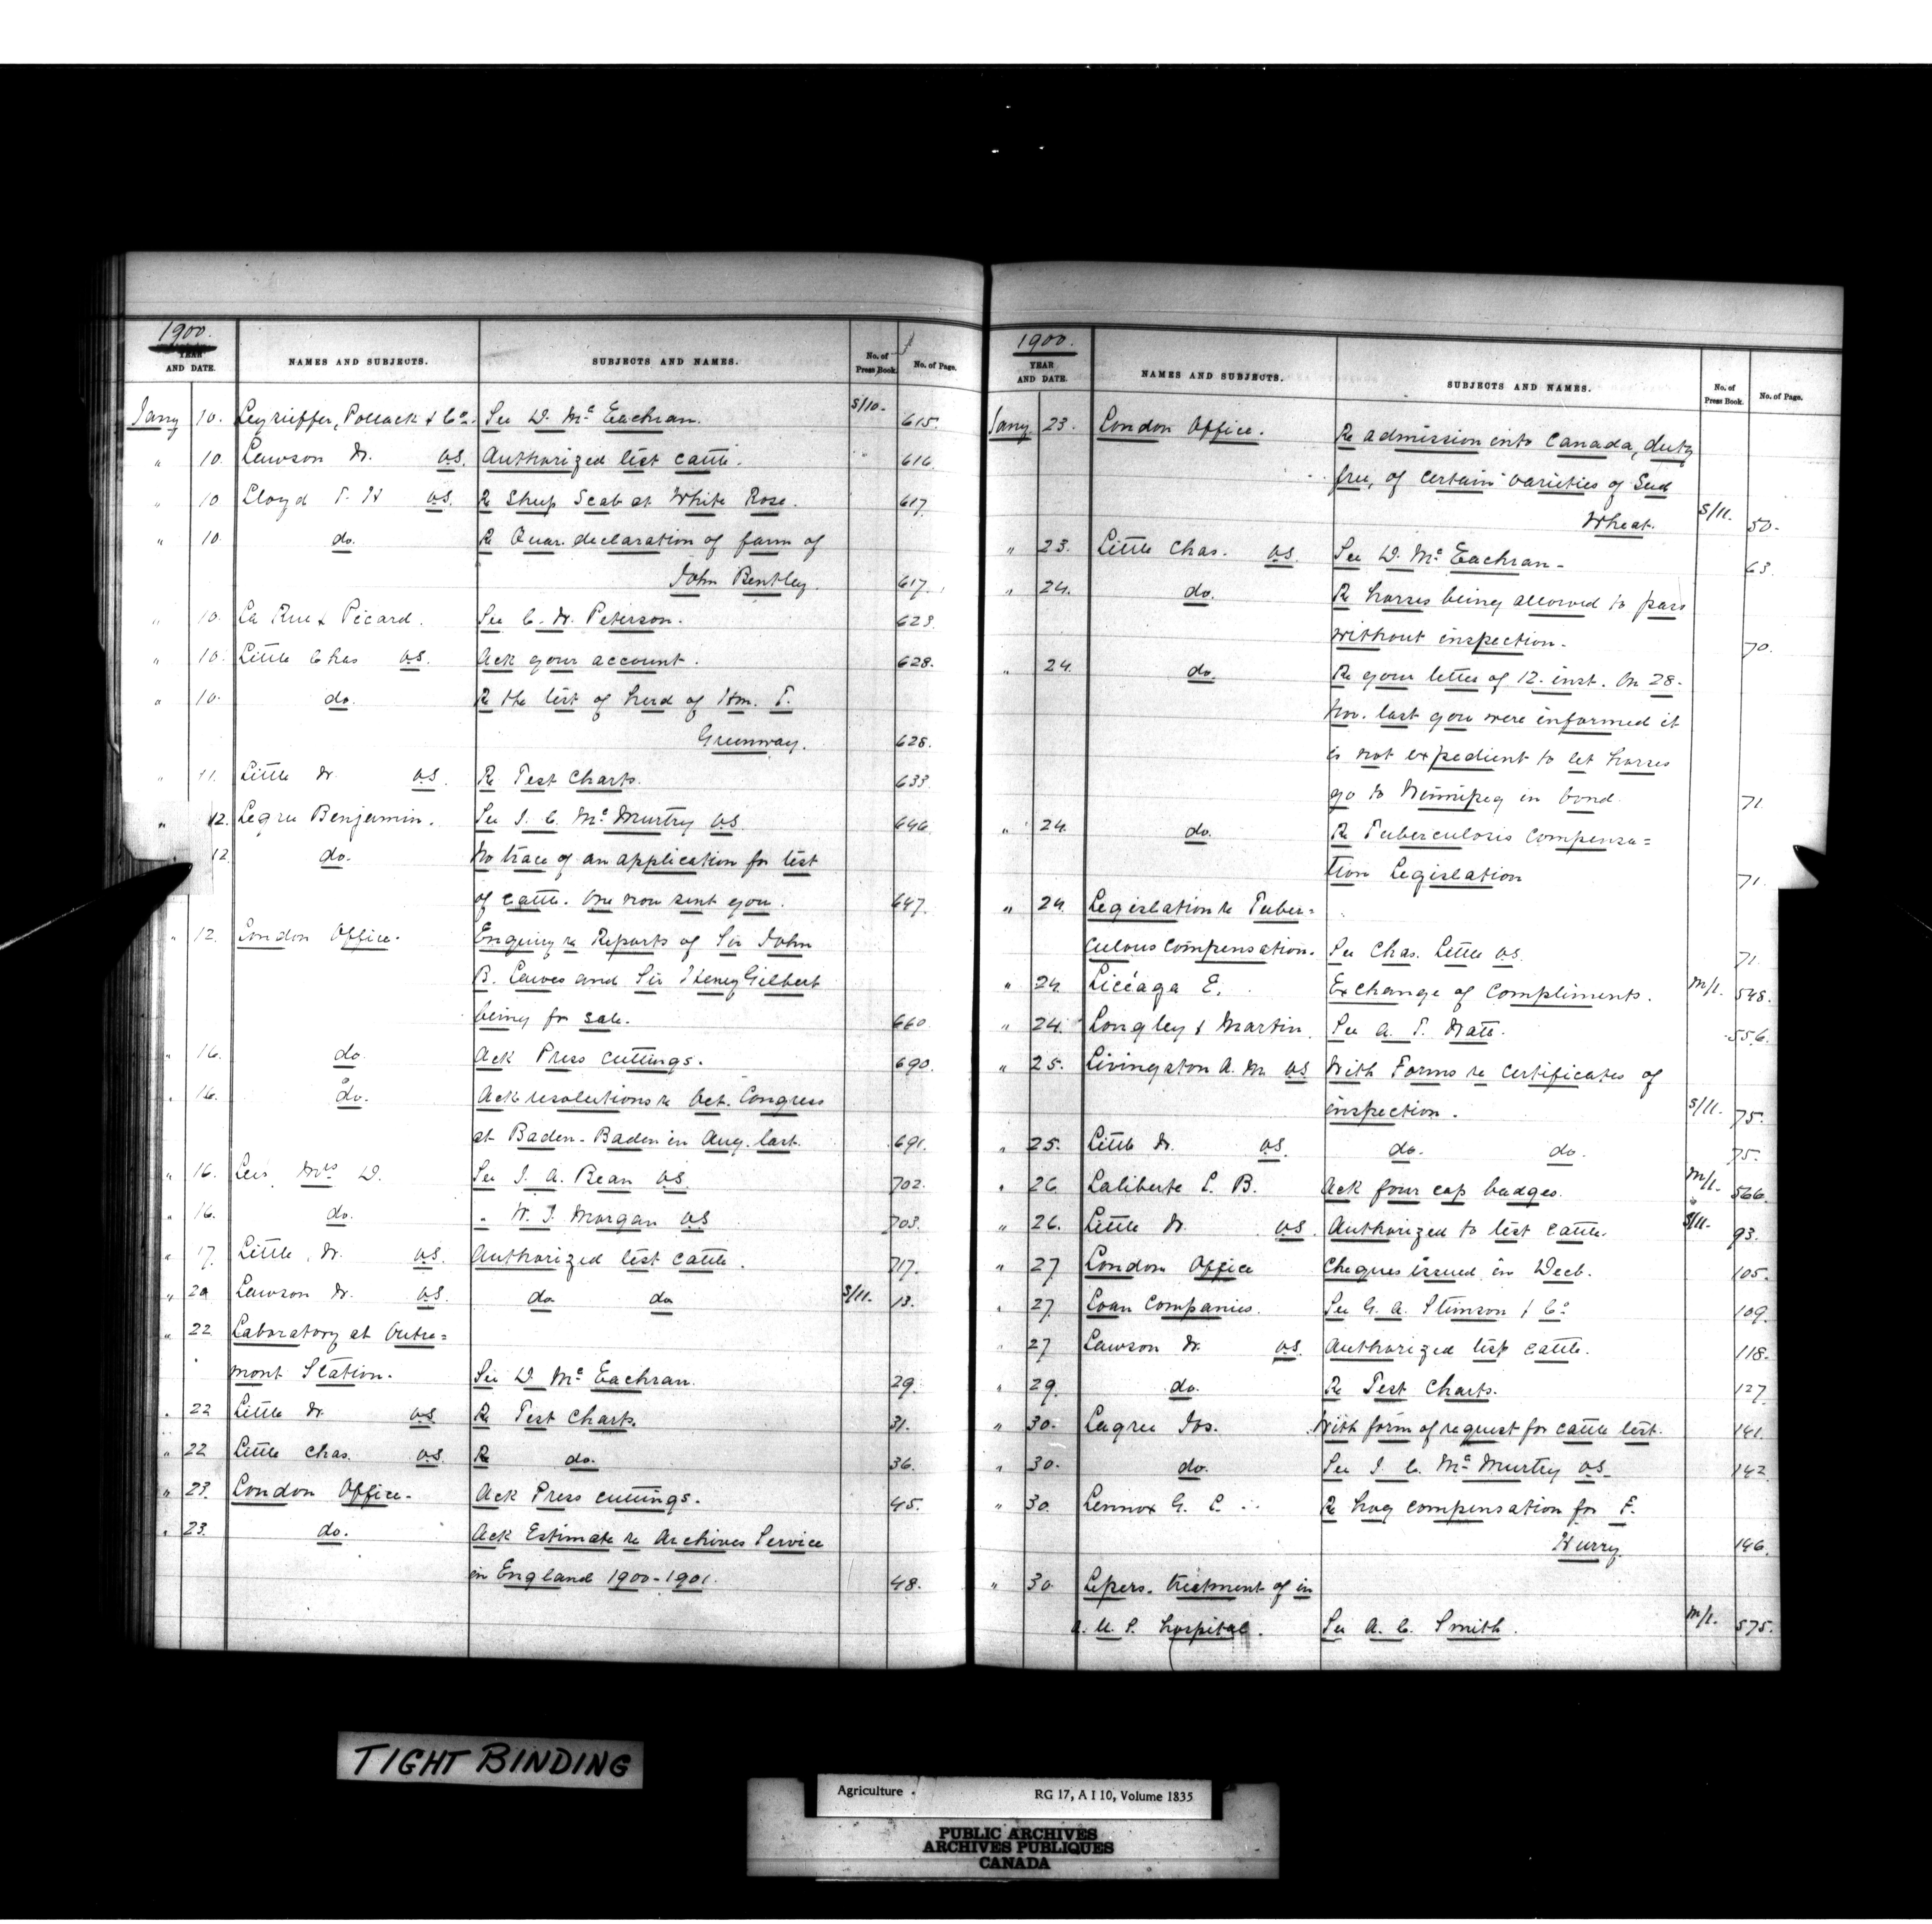 1900.
YEAR AND DATE. NAMES AND SUBJECTS. SUBJECTS AND NAMES. No. of Press Book. No. of Page.
Jany 10. Leyrieffer, Pollack & Co. See D. McEachran. S/10. 615.
" 10. Lawson Dr. V.S. Authorized test cattle. " 616
" 10 Lloyd T. H V.S. Re Sheep Scab at White Rose. 617.
" 10. do. Re Quar. declaration of farm of
John Bentley. 617.
" 10. La Rue & Picard. See C. W. Peterson. 623.
" 10. Little Chas V.S. Ack your account. 628.
" 10. do. Re the test of herd of Hon. T.
Greenway. 628.
" 11. Little Dr. V.S. Re Test Charts. 633
" 12. Legree Benjamin. See J. C. McMurtry V.S. 646
" 12. do. No trace of an application for test
of cattle. One now sent you. 647.
" 12. London Office. Enquiry re Reports of Sir John
B. Lawes and Sir Henry Gilbert
being for sale. 660
" 16. do. Ack Press cuttings. 690.
" 16. do. Ack resolutions re Vet. Congress
at Baden-Baden in Aug. last. 691.
" 16. Leis, Mrs D. See J. A. Bean V.S. 702.
" 16. do. " W. J. Morgan V.S 703.
" 17. Little, Dr. V.S. Authorized test cattle. 717.
" 20 Lawson Dr. V.S. do do S/11. 13.
" 22 Laboratory at Outre=
mont Station. See D McEachran. 29.
" 22 Little Dr. V.S Re Test Charts. 31.
" 22 Little Chas. V.S. Re do. 36.
" 23. London Office. Ack Press cuttings. 45.
" 23. do. Ack Estimate re Archives Service
in England 1900-1901. 48.
1900.
YEAR AND DATE. NAMES AND SUBJECTS. SUBJECTS AND NAMES. No. of Press Book. No. of Page.
Jany. 23. London Office. Re admission into Canada, duty
free, of certain varieties of Seed
Wheat. S/11. 50.
" 23. Little Chas. V.S. See D. McEachran. 63.
" 24. do. Re horses being allowed to pass
without inspection. 70.
" 24. do. Re your letter of 12. inst. On 28.
Nov. last you were informed it
is not expedient to let horses
go to Winnipeg in bond. 71
" 24. do. Re Tuberculosis Compensa=
tion Legislation 71.
" 24. Legislation re Tuber=
culous Compensation. See Chas. Little V.S. 71.
" 24. Licéaga E. Exchange of Compliments. M/1. 548.
" 24. Longley & Martin. See A. T. Watt. 556.
" 25. Livingston A. M. V.S With Forms re Certificates of
inspection. S/11. 75.
" 25. Little Dr. V.S. do. do. 75.
" 26 Laliberte L. B. Ack four cap badges. M/1. 566.
" 26. Little Dr. V.S. Authorized to test cattle. S/11. 93.
" 27 London Office Cheques issued in Decb. 105.
" 27. Loan Companies. See G. A. Stimson & Co 109.
" 27 Lawson Dr. V.S. Authorized test cattle. 118.
" 29. do. Re Test Charts. 127.
" 30. Lagree Jos. With form of request for cattle test. 141.
" 30. do. See J. C. McMurtry V.S. 142.
" 30. Lennox G. E. Re hog compensation for F.
Hurry. 146.
" 30 Lepers. treatment of in
a. U. S. hospital. See A. C. Smith. M/1. 575.
TIGHT BINDING
Agriculture . RG 17, A I 10, Volume 1835
PUBLIC ARCHIVES
ARCHIVES PUBLIQUES
CANADA